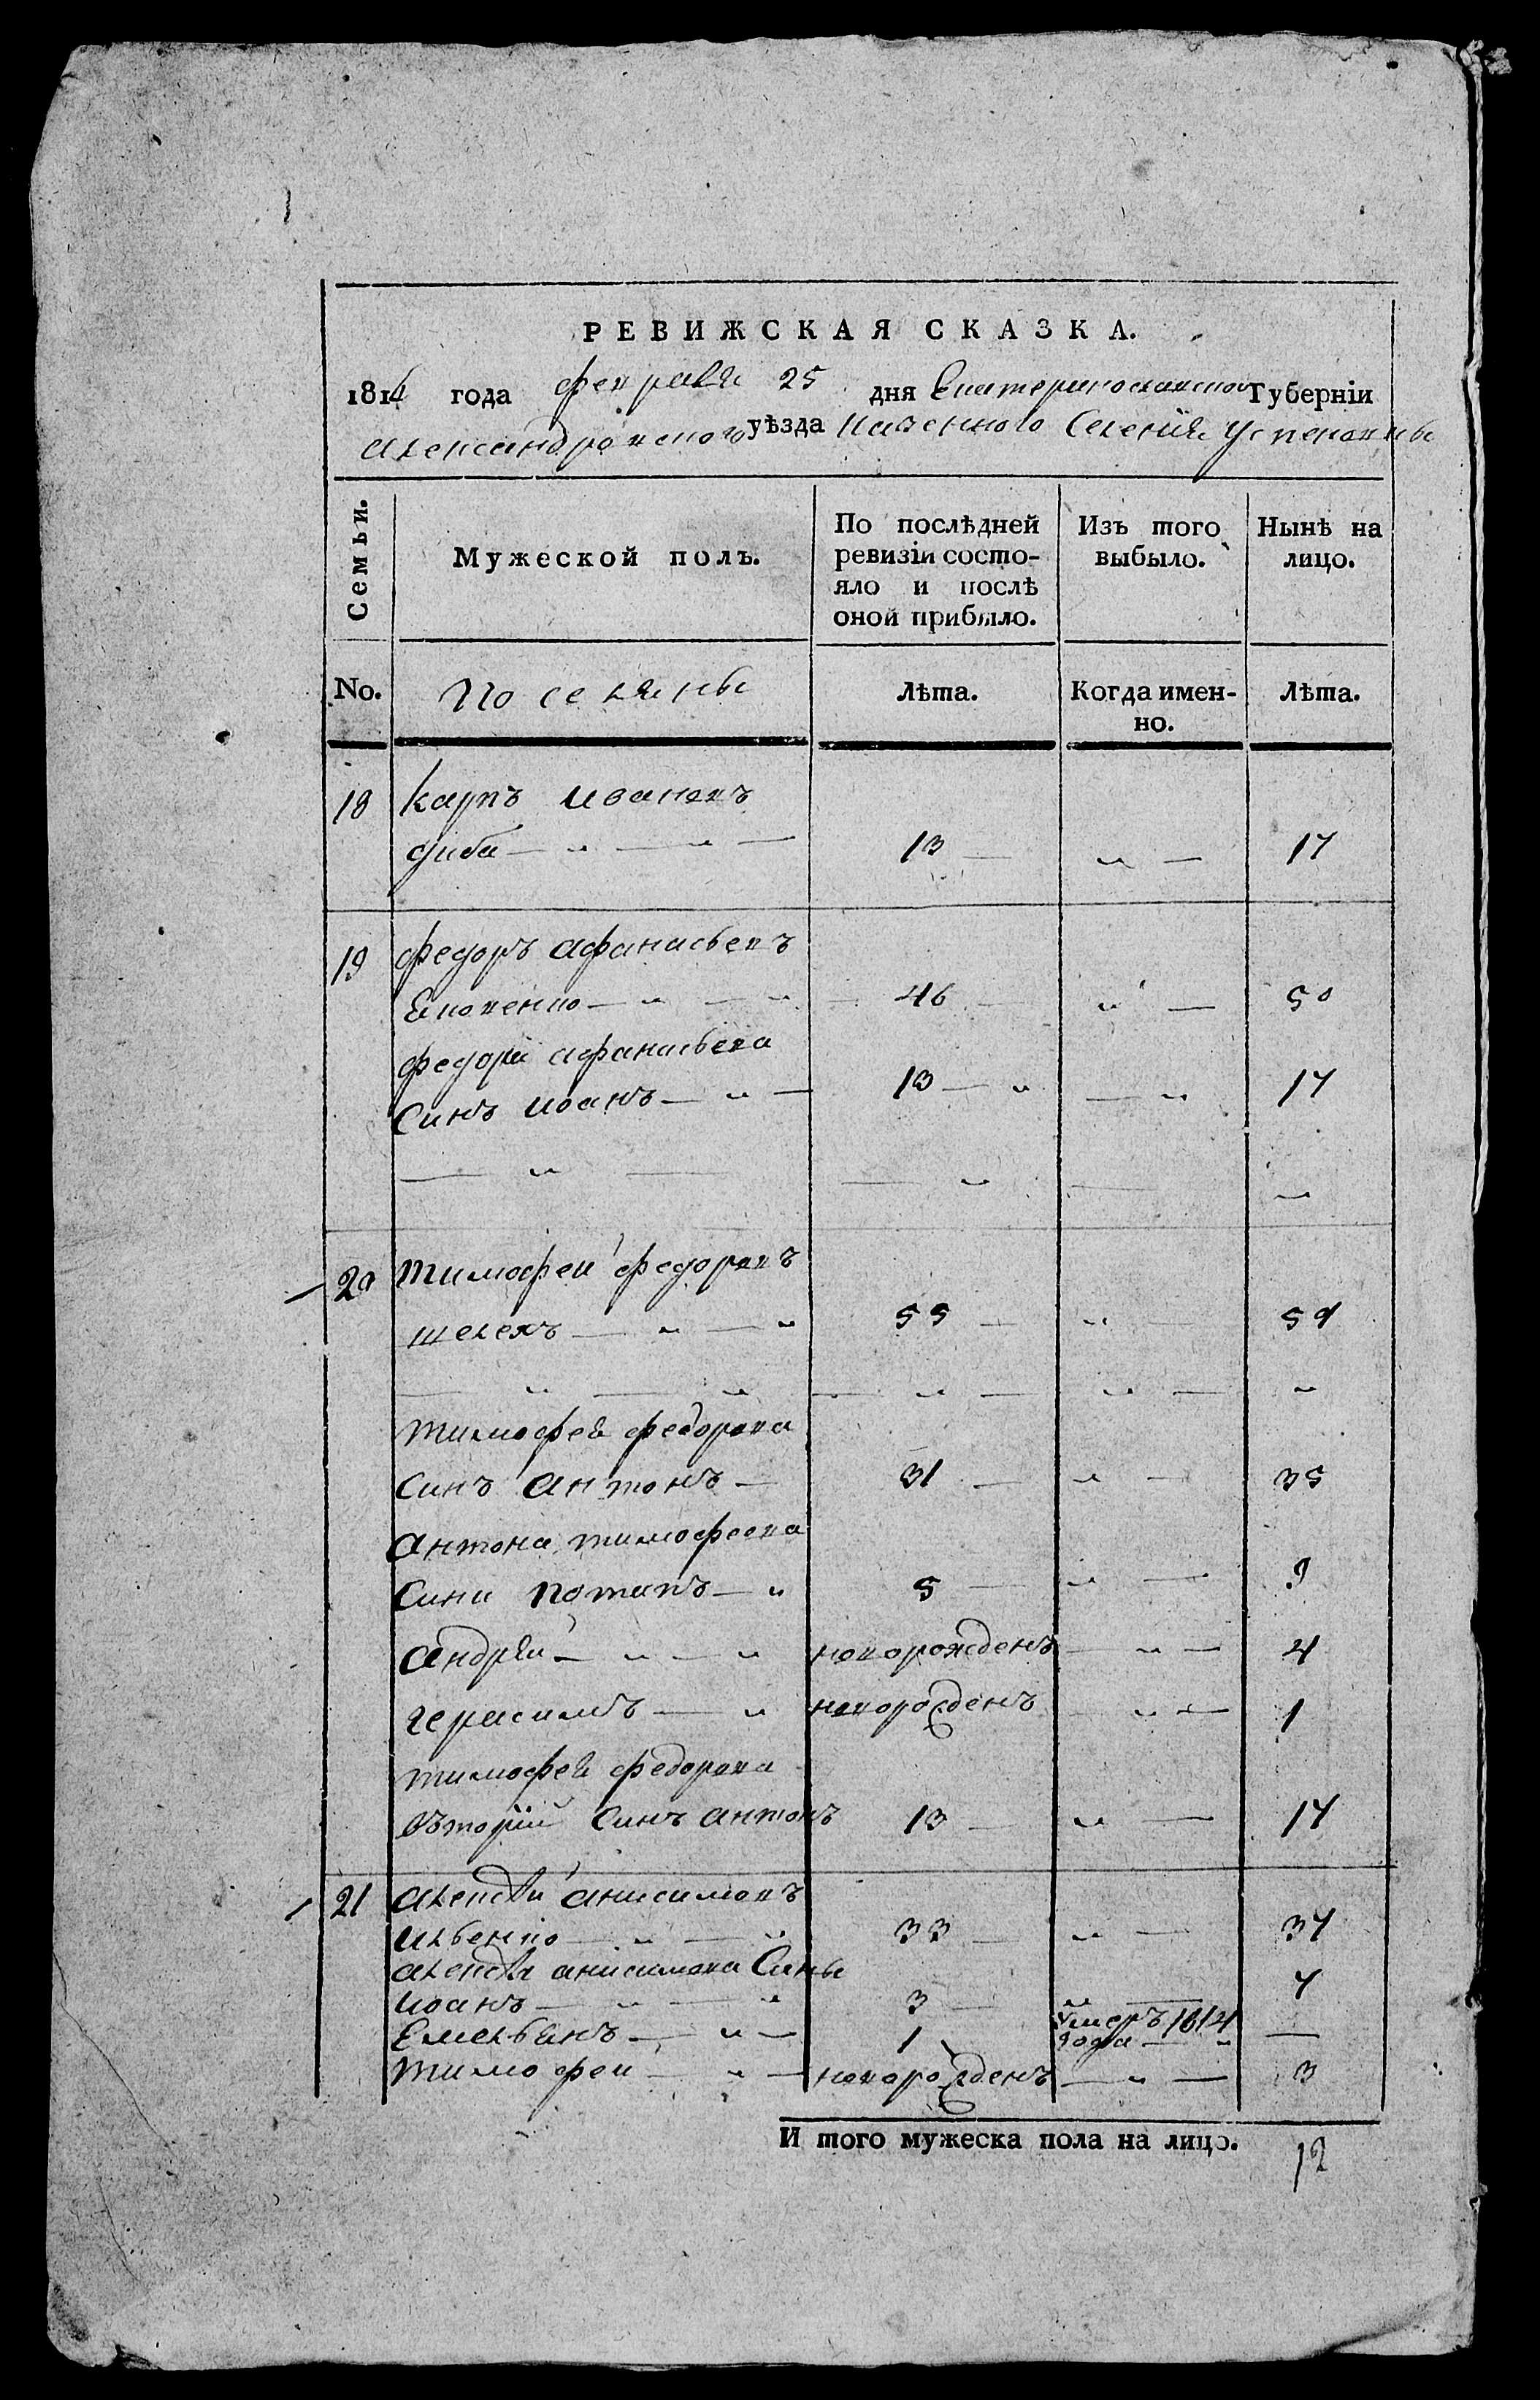 РЕВИЖСКАЯ СКАЗКА.
1816 года февраля 25 дня Екатеринославской Губерніи
Александровского уѣзда казенного Селенія Успеновки
Семьи.
Мужеской полъ.
По послѣдней ревизіи состо-
яло и послѣ
оной прибыло.
Изъ того
выбыло.
Нынѣ на
лицо.
No.
Поселяны
Лѣта.
Когда имен-
но.
Лѣта.
18 Карпъ Ивановъ
13 17
19 Федоръ Афанасьевъ
46 50
Федора Афанасьева
Синъ Иванъ 13 17
20 Тимофей Федоровъ
Шелехъ 55 59
Тимофея Федорова
Синъ Антонъ 31 35
Антона Тимофеева
Сини Потапъ 5 9
Андрей новорожденъ 4
Герасимъ новорожденъ 1
Тимофея Федорова
Вторий Синъ Антонъ 13 17
21 Алексѣй Анисимовъ
Ильенко 33 37
Алексѣя Анисимова Сины
Иванъ 3 7
Емельянъ 1 умеръ 1814
года
Тимофей новорожденъ 3
И того мужеска пола на лицо. 12